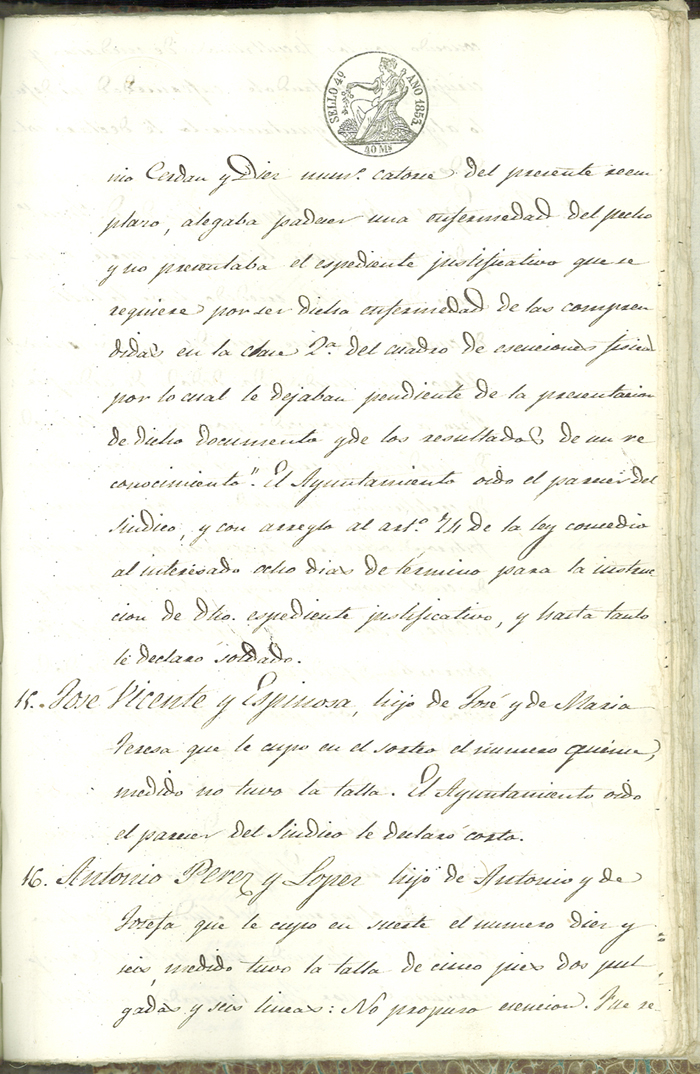 SELLO 4º AÑO 1853.
40 Ms
nio Cerdan y Diez numº. catorce del presente reem
plazo, alegaba padecer una enfermedad del pecho
y no presentaba el espediente justificativo que se
requiere por ser dicha enfermedad de las compren
didas en la clase 2ª. del cuadro de esenciones fisicas
por lo cual le dejaban pendiente de la presentacion
de dicho documento y de los resultados de un re
conocimiento". El Ayuntamiento oido el parecer del
Sindico, y con arreglo al artº. 74 de la ley concedio
al interesado ocho dias de termino para la instruc
cion de dho. espediente justificativo, y hasta tanto
le declaró soldado.
15. José Vicente y Espinosa, hijo de José y de Maria
Teresa que le cupo en el sorteo el numero quince,
medido no tuvo la talla. El Ayuntamiento oido
el parecer del Sindico le declaró corto.
16. Antonio Perez y Lopez hijo de Antonio y de
Josefa que le cupo en suerte el numero diez y
seis, medido tuvo la talla de cinco pies dos pul
gadas y seis lineas: No propuso esencion. Fue re-